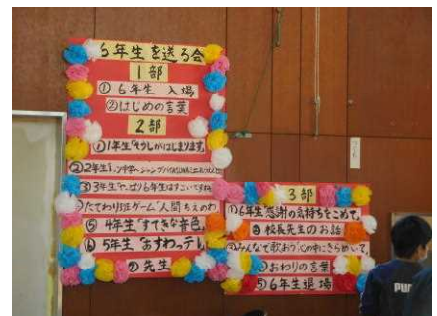 6年生を送る会
1部
① 6年生 入場
②はじめの言葉
2部
①1年生「そうしがはじまります」
②2年生
③3年生「やっぱり6年生はすごいですね
④たてわり班ゲーム「人間ちえのわ
⑤ 4年生「すてきな音色」
⑥ 5年生「あすわッテレ
⑦ 先生
3部
①6年生「感謝の気持ちをこめて」
② 校長先生のお話
③みんなで歌おう「心の中にきらめいて」
④おわりの言葉
⑤6年生退場
PUM